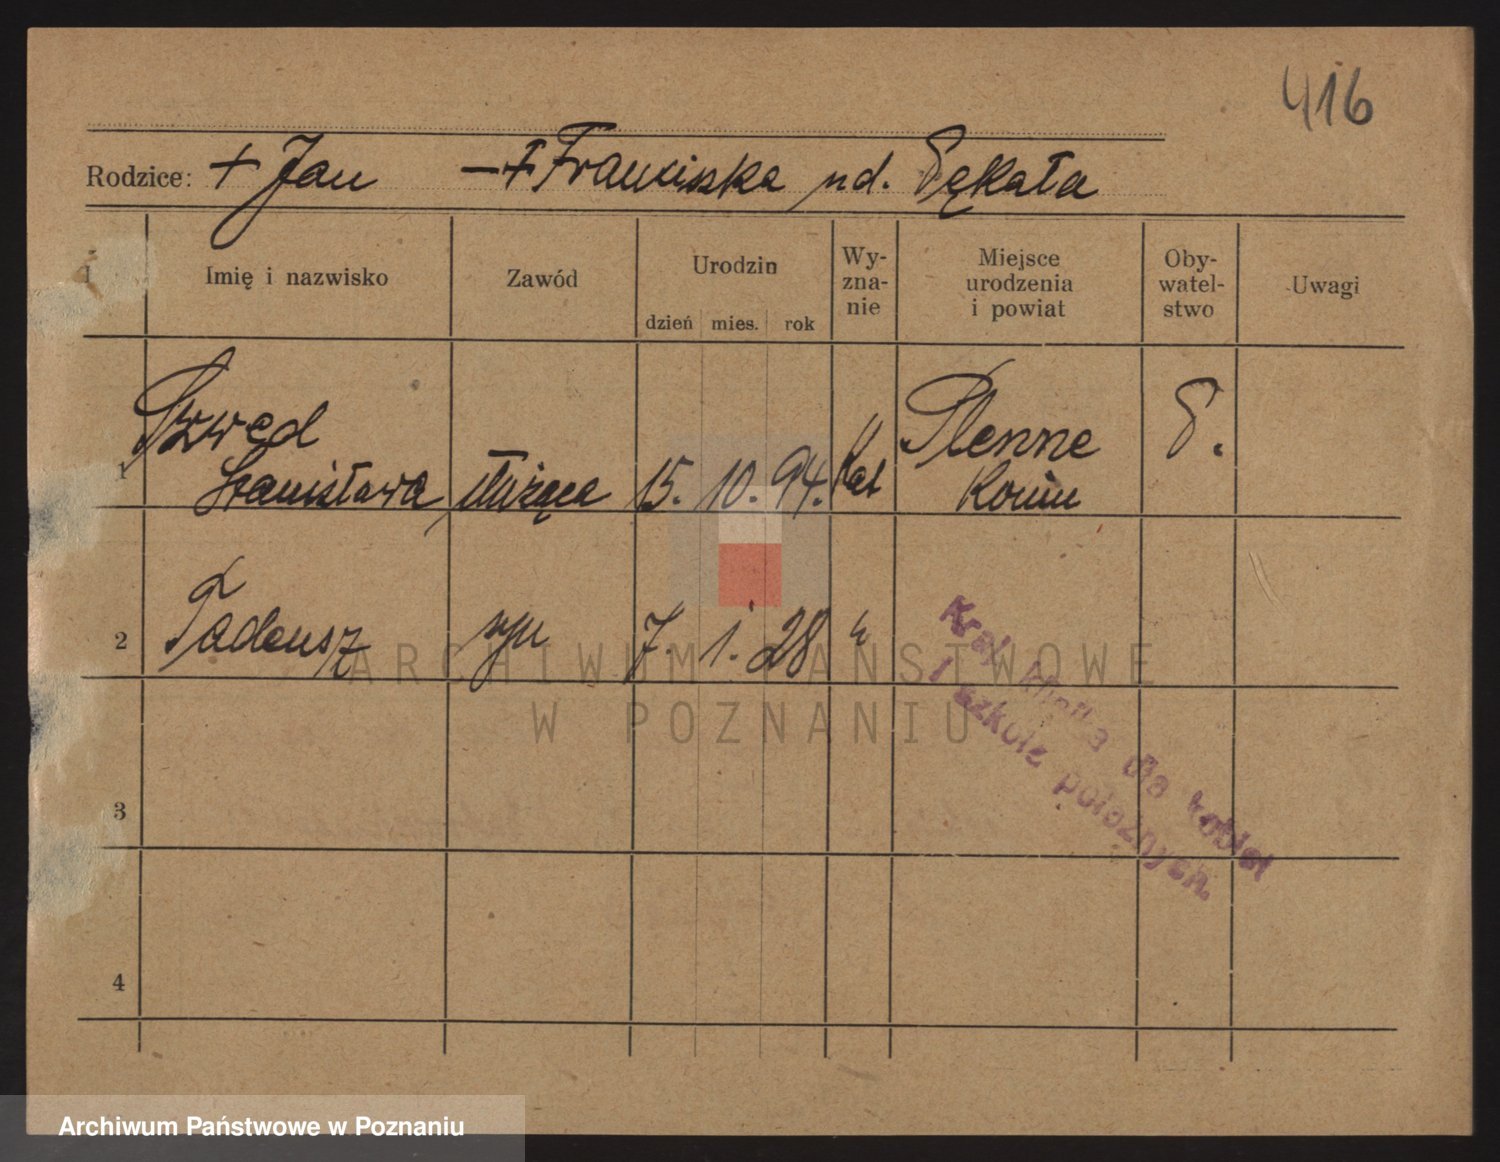 416
Rodzice: + Jan — + Franciszka nd. Sękała
Imię i nazwisko Zawód Urodzin dzień mies. rok Wyznanie Miejsce urodzenia i powiat Obywatelstwo Uwagi
Szwed
1 Stanisława służąca 15. 10. 94. Kat Plenne Konin P.
2 Tadeusz syn 7. 1. 28 "
Kraj. klinika dla kobiet
i szkoła położnych.
3
4
ARCHIWUM PAŃSTWOWE
W POZNANIU
Archiwum Państwowe w Poznaniu